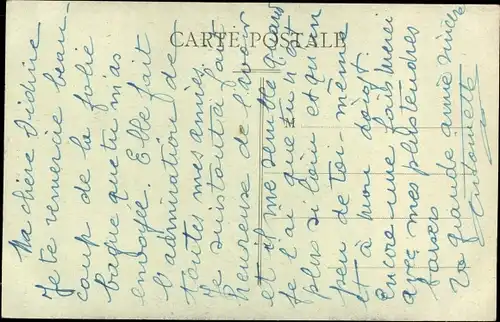 CARTE POSTALE
Ma chère Didine
Je te remercie beau-
coup de la jolie
bague que tu m'as
envoyée. Elle fait
l'admiration de
toutes mes amies
Je suis tout à fait
heureuse de l'avoir
et il me semble quand
je l'ai que tu n'est
plus si loin et qu'un
peu de toi-même
est à mon doigt
Encore une fois merci
avec mes plus tendres
baisers
Ta grande amie sincère